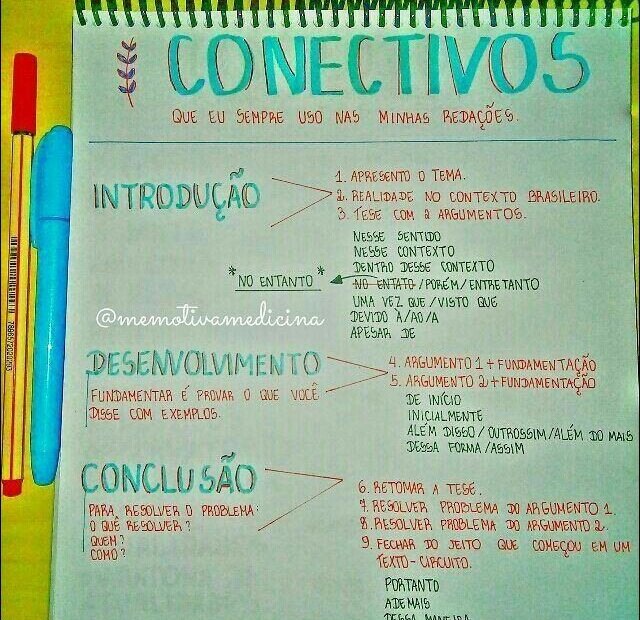 CONECTIVOS
QUE EU SEMPRE USO NAS MINHAS REDAÇÕES.
INTRODUÇÃO
1. APRESENTO O TEMA.
2. REALIDADE NO CONTEXTO BRASILEIRO.
3. TESE COM 2 ARGUMENTOS.
NESSE SENTIDO
NESSE CONTEXTO
DENTRO DESSE CONTEXTO
*NO ENTANTO* NO ENTATO/PORÉM/ENTRETANTO
UMA VEZ QUE/VISTO QUE
DEVIDO À/AO/A
APESAR DE
@memotivamedicina
DESENVOLVIMENTO
FUNDAMENTAR É PROVAR O QUE VOCÊ
DISSE COM EXEMPLOS.
4. ARGUMENTO 1 + FUNDAMENTAÇÃO
5. ARGUMENTO 2 + FUNDAMENTAÇÃO
DE INÍCIO
INICIALMENTE
ALÉM DISSO/OUTROSSIM/ALÉM DO MAIS
DESSA FORMA/ASSIM
CONCLUSÃO
PARA RESOLVER O PROBLEMA:
O QUÊ RESOLVER?
QUEM?
COMO?
6. RETOMAR A TESE.
7. RESOLVER PROBLEMA DO ARGUMENTO 1.
8. RESOLVER PROBLEMA DO ARGUMENTO 2.
9. FECHAR DO JEITO QUE COMEÇOU EM UM
TEXTO-CIRCUITO.
PORTANTO
ADEMAIS
DESSA MANEIRA